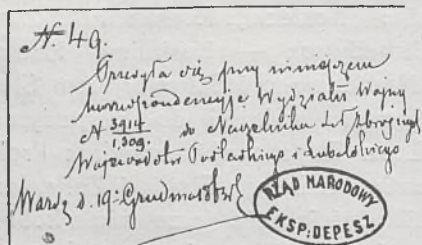 N. 49.
Przesyła się przy niniejszem
korrespondencyje Wydziału Wojny
N 3914/1,309. do Naczelnika sił zbrojnych
Województw Podlaskiego i Lubelskiego
d. 19 Grudnia
RZĄD NARODOWY
EKSP: DEPESZ